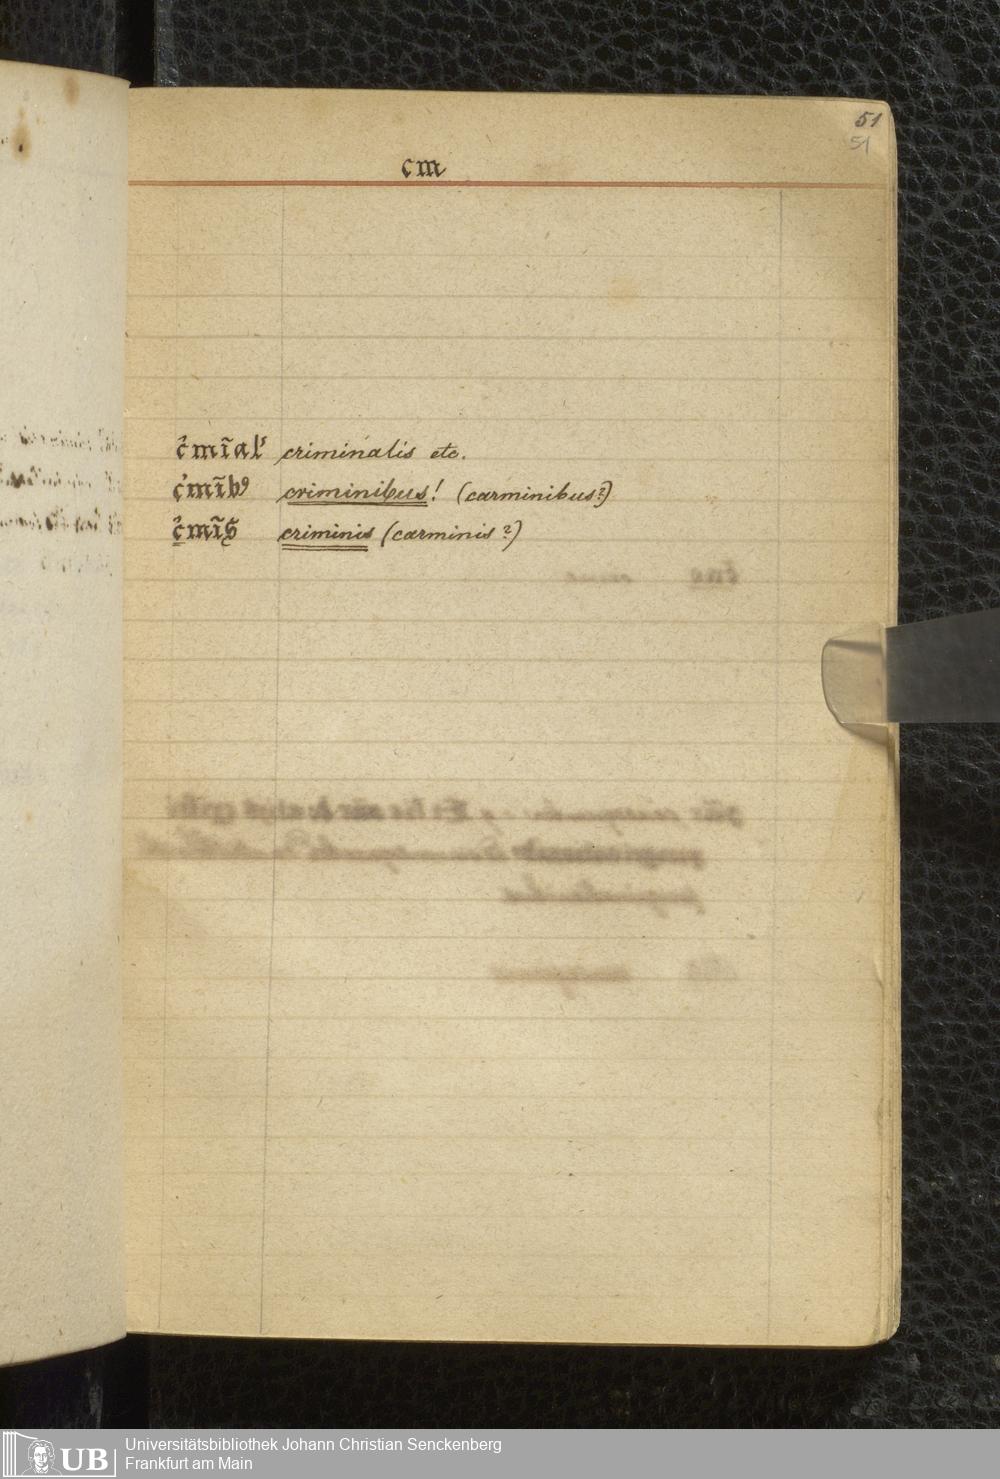 51
51
cm
c̉mīal᷒ criminalis etc.
c̉mībꝰ criminibus! (carminibus?)
c̉mīs criminis (carminis?)
UB Universitätsbibliothek Johann Christian Senckenberg
Frankfurt am Main